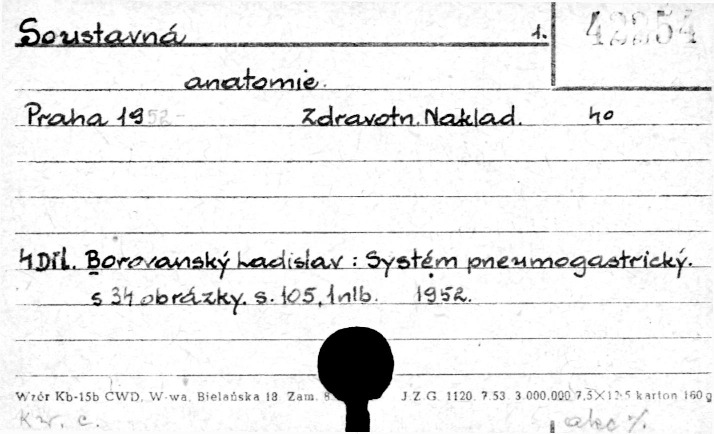 Soustavná 1. 42254
anatomie.
Praha 1952- Zdravotn. Naklad. 4o
4 Díl. Borovanský Ladislav : Systém pneumogastrický.
s 34 obrázky. s. 105, 1 nlb. 1952.
Wzór Kb-15b CWD, W-wa, Bielańska 18 Zam. J.Z.G. 1120. 7.53. 3 000.000 7,5×12,5 karton 160 g
Kw. c.